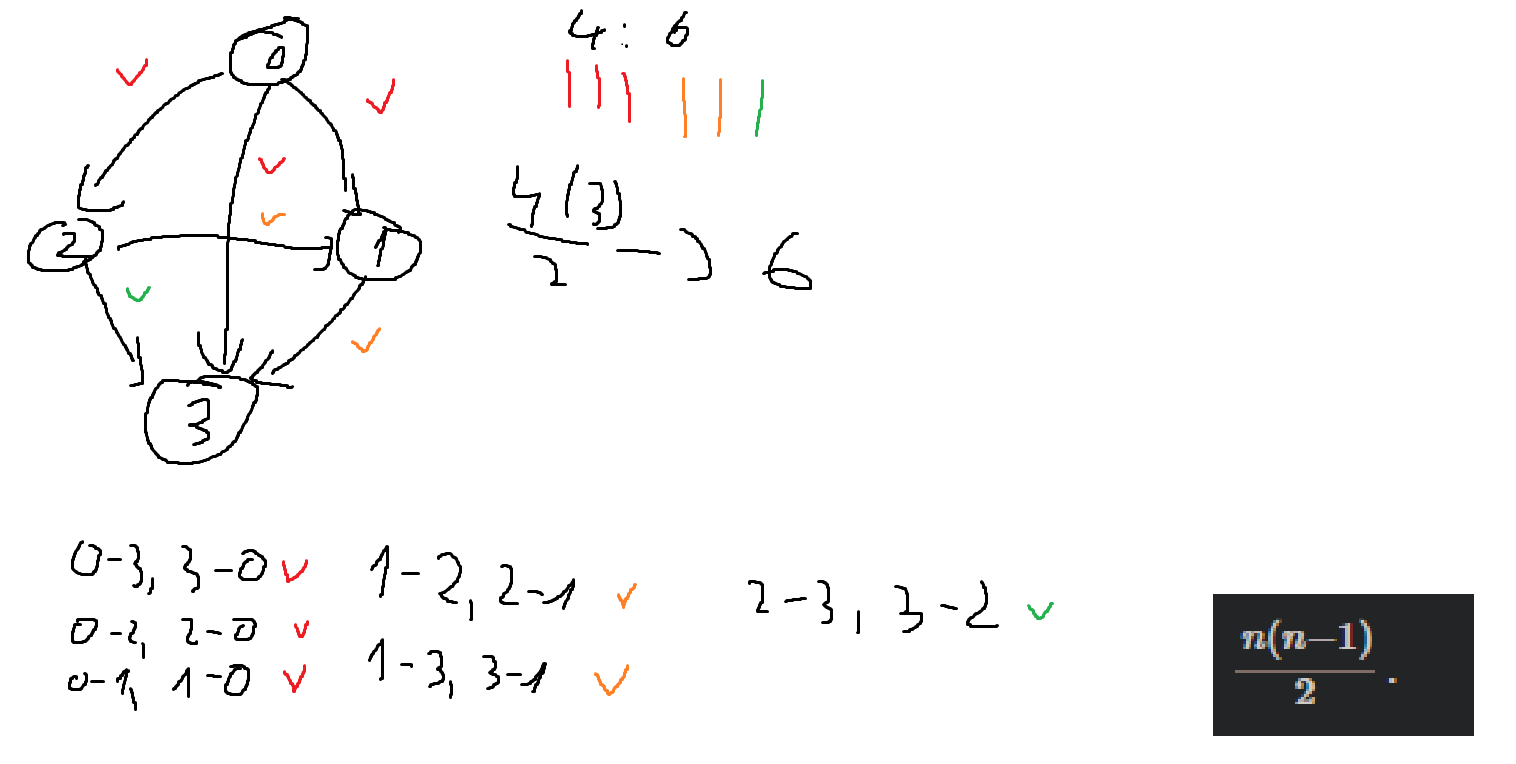 0
2
1
3
4: 6
4(3)
2
-> 6
0-3, 3-0
0-2, 2-0
0-1, 1-0
1-2, 2-1
1-3, 3-1
2-3, 3-2
n(n-1)
2 .